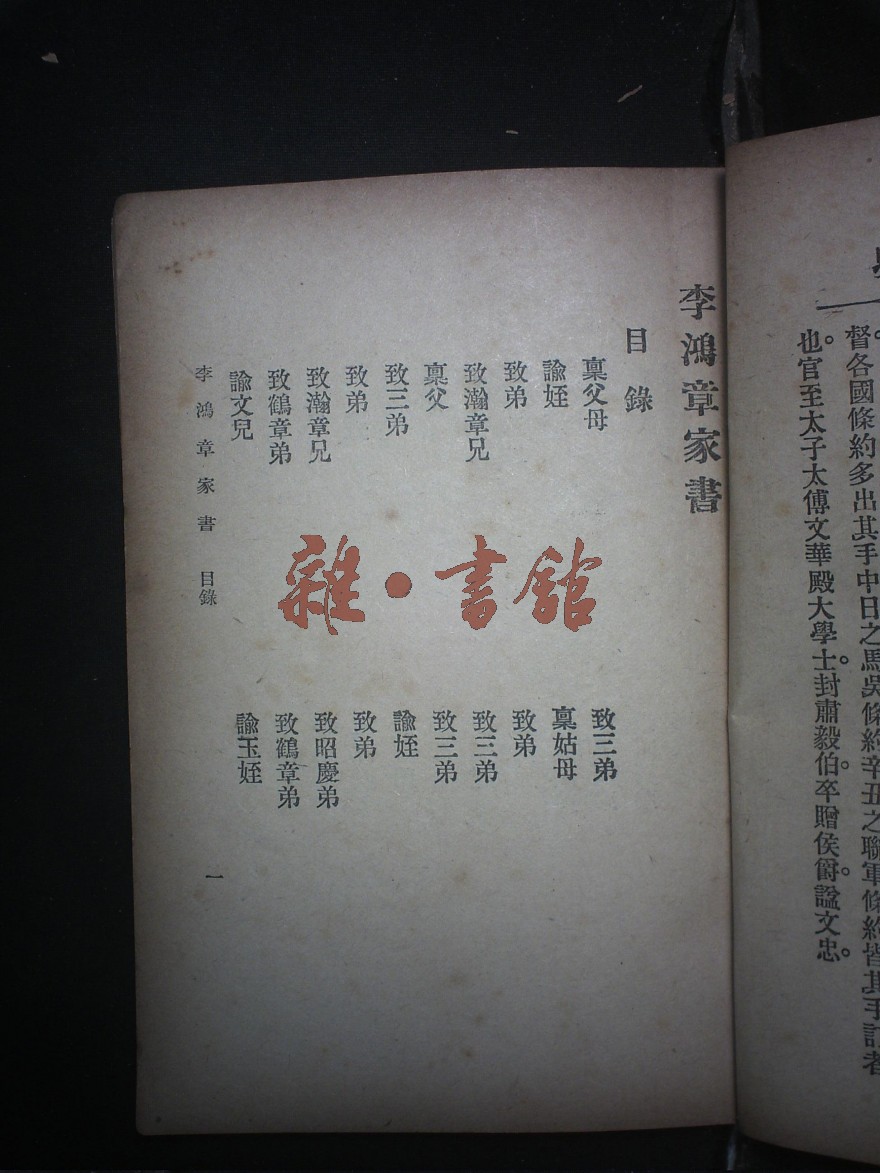 督各國條約多出其手中日之馬吳條約辛丑之聯軍條約皆其手訂者
也。官至太子太傅文華殿大學士。封肅毅伯。卒贈侯爵。諡文忠。
李鴻章家書
目錄
稟父母
諭姪
致弟
致瀚章兄
稟父
致三弟
致弟
致瀚章兄
致鶴章弟
諭文兒
致三弟
稟姑母
致弟
致三弟
致三弟
諭姪
致弟
致昭慶弟
致鶴章弟
諭玉姪
李鴻章家書 目錄
一
雜·書館